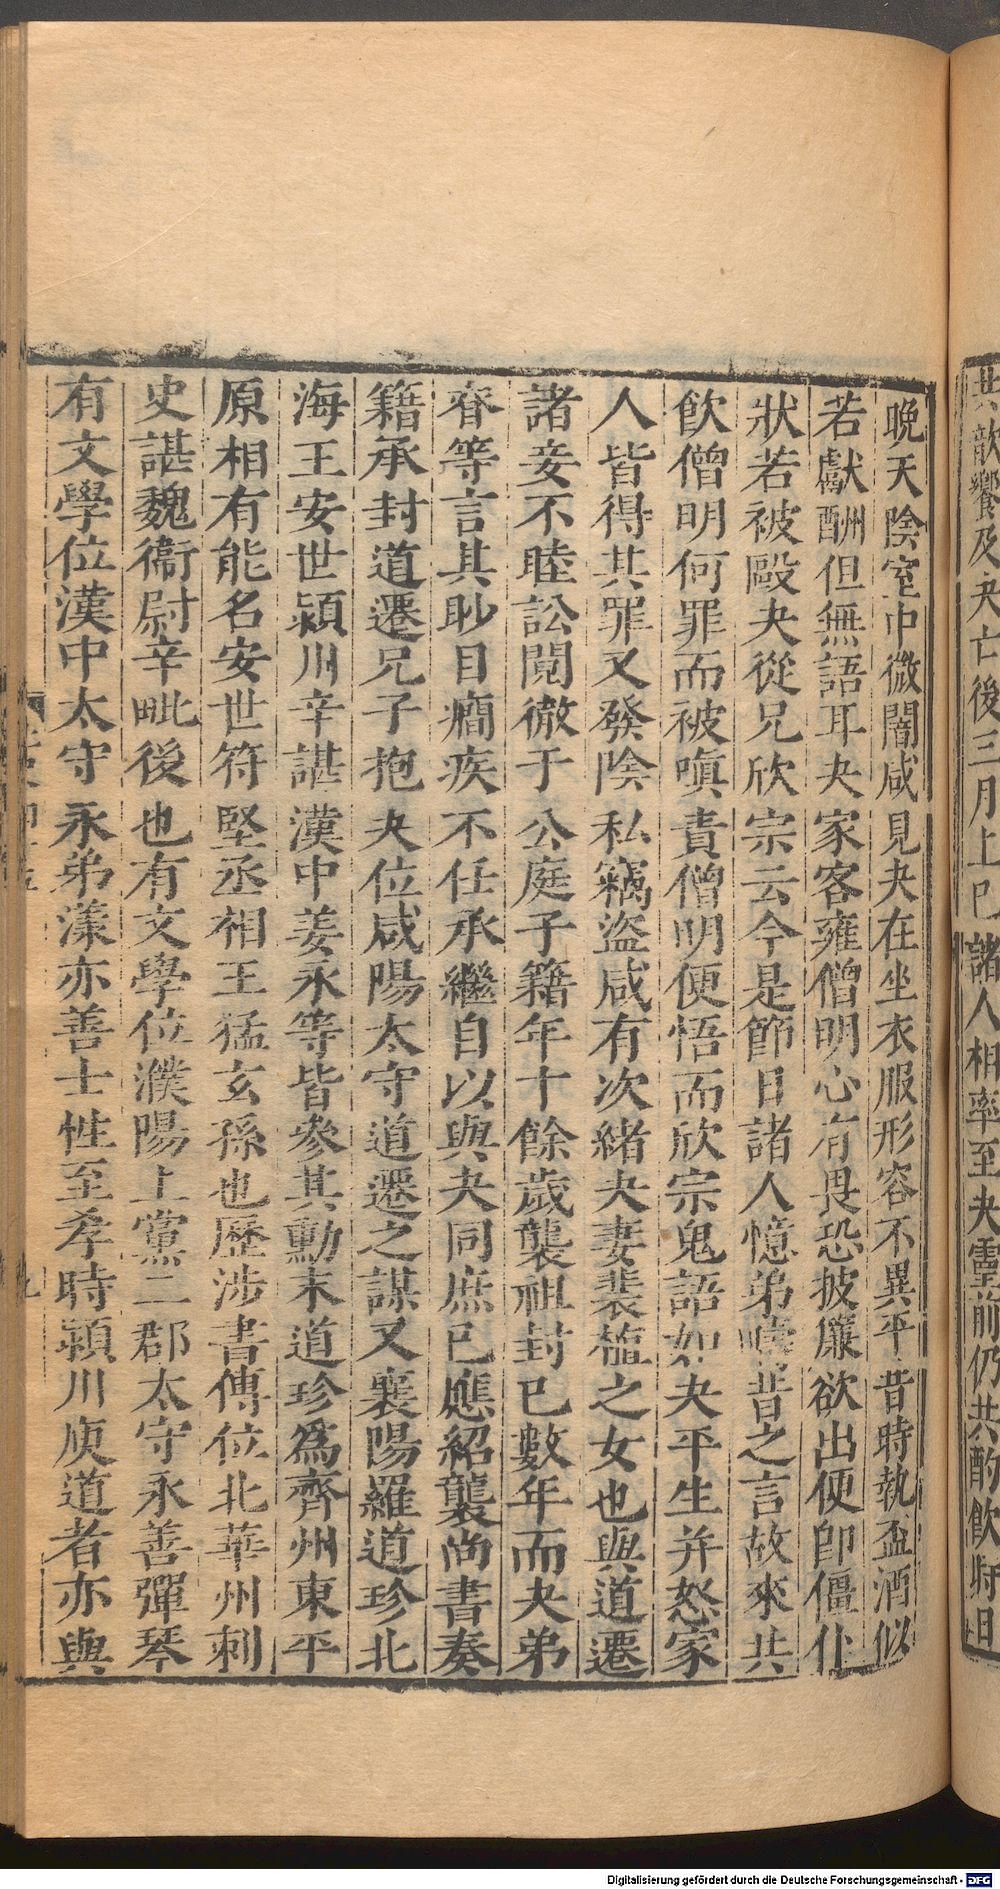 共歆饗及夬亡後三月上巳諸人相率至夬靈前仍共酌飲時日
晚天陰室中微闇咸見夬在坐衣服形容不異平昔時執盃酒似
若獻酬但無語耳夬家客雍僧明心有畏恐披簾欲出便即僵仆
狀若被毆夬從兄欣宗云今是節日諸人憶弟疇昔之言故來共
飲僧明何罪而被嗔責僧明便悟而欣宗鬼語如夬平生并怒家
人皆得其罪又發陰私竊盜咸有次緒夬妻裴植之女也與道遷
諸妾不睦訟鬩徹于公庭子籍年十餘歲襲祖封已數年而夬弟
眘等言其眇目癎疾不任承繼自以與夬同庶已應紹襲尚書奏
籍承封道遷兄子抱夬位咸陽太守道遷之謀又襄陽羅道珍北
海王安世潁川辛諶漢中姜永等皆參其勳末道珍爲齊州東平
原相有能名安世符堅丞相王猛玄孫也歷涉書傳位北華州刺
史諶魏衞尉辛毗後也有文學位濮陽上黨二郡太守永善彈琴
有文學位漢中太守永弟漾亦善士性至孝時潁川庾道者亦與
九
Digitalisierung gefördert durch die Deutsche Forschungsgemeinschaft - DFG